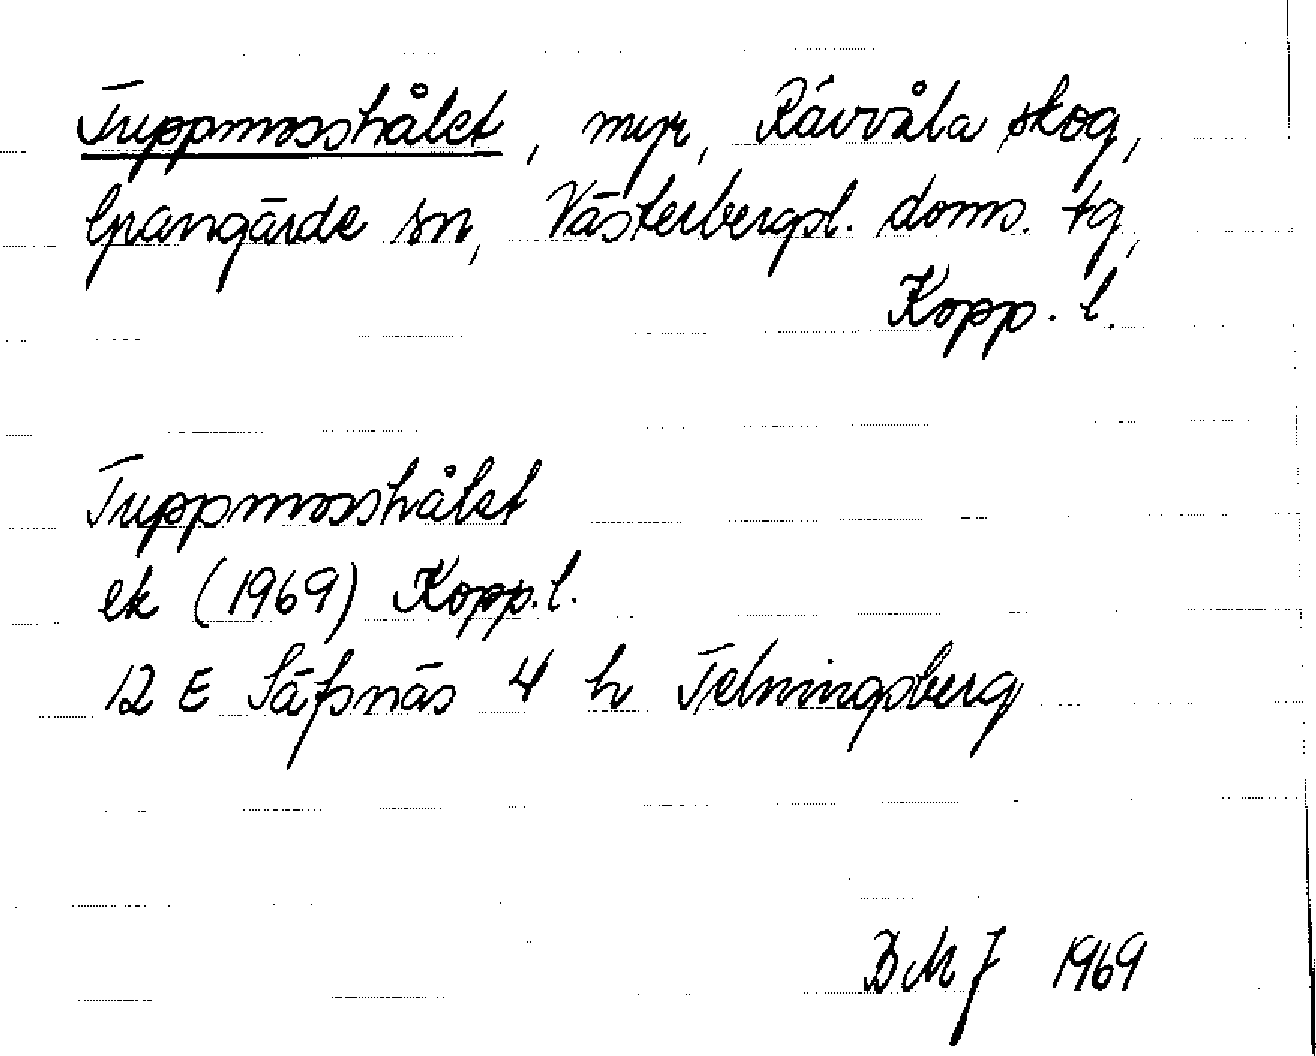 Tuppmosshålet, myr, Rävvåla skog,
Grangärde sn, Västerbergsl. doms. tg,
Kopp. l.
Tuppmosshålet
ek (1969) Kopp. l.
12 E Säfsnäs 4 h Telningsberg
BMJ 1969